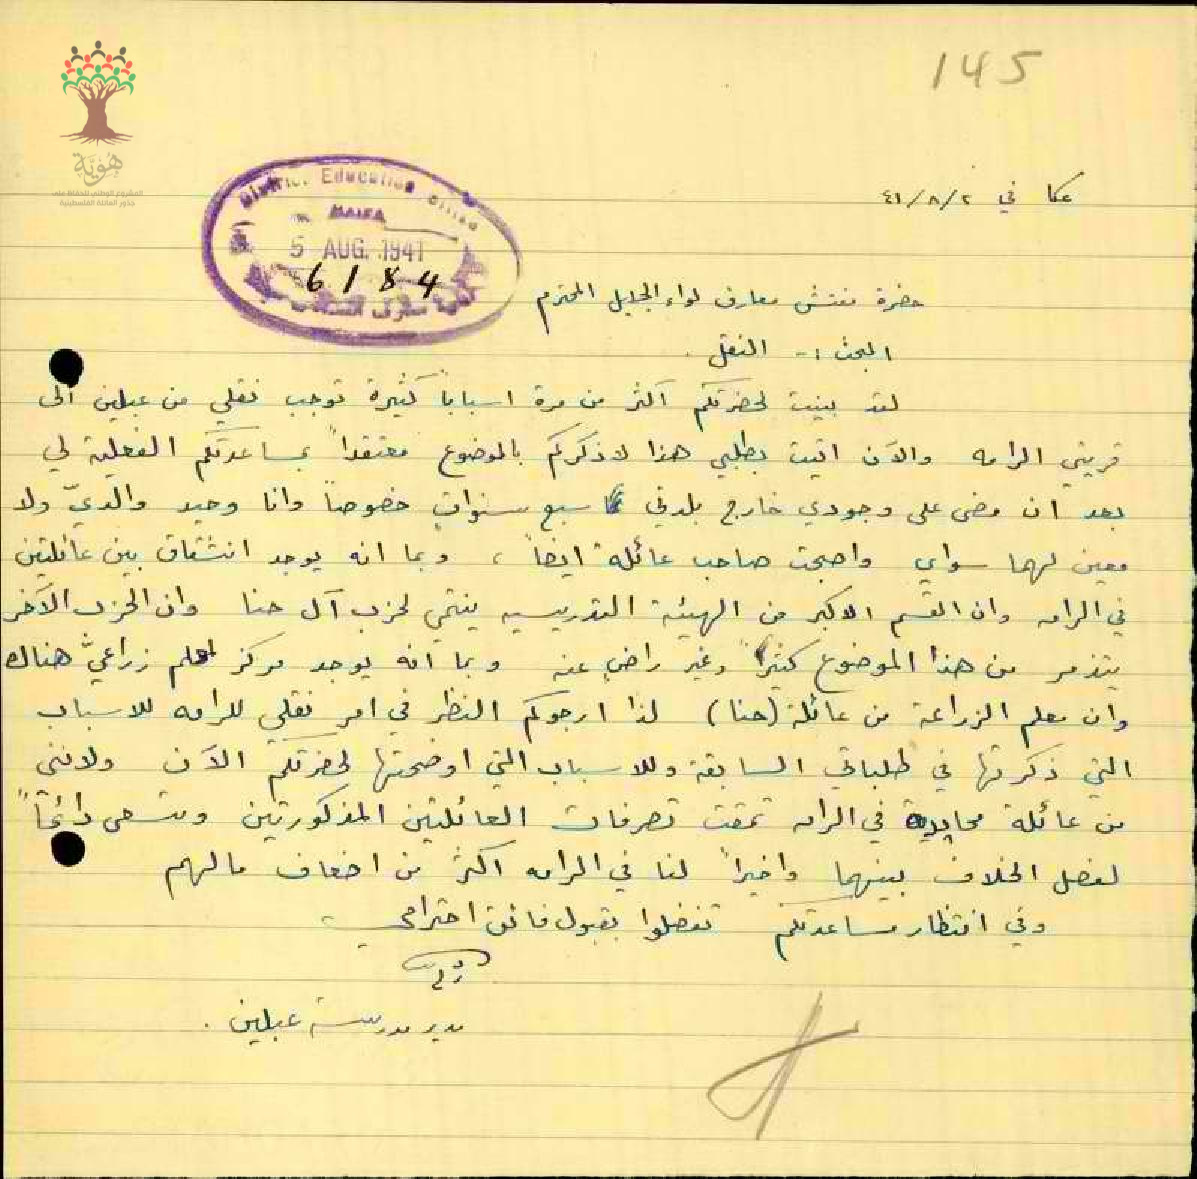 145
هُوِيَّة
المشروع الوطني للحفاظ على
جذور العائلة الفلسطينية
عكا في ٤١/٨/٢
District Education Office
HAIFA
5 AUG. 1941
6184
حضرة مفتش معارف لواء الجليل المحترم
المبحث :- النقل .
لقد بينت لحضرتكم اكثر من مرة اسباباً كثيرة توجب نقلي من عبلين الى
قريتي الرامه والآن اتيت بطلبي هذا لاذكركم بالموضوع معتقداً بمساعدتكم الفعلية لي
بعد ان مضى على وجودي خارج بلدتي سبع سنوات خصوصاً وانا وحيد والديّ ولا
معين لهما سواي واصبحت صاحب عائلة ايضاً ، وبما انه يوجد انشقاق بين عائلتين
في الرامه وان القسم الاكبر من الهيئة التدريسيه ينتمي لحزب آل حنا وان الحزب الآخر
يتذمر من هذا الموضوع كثيراً وغير راضٍ عنه وبما انه يوجد مركز معلم زراعيّ هناك
وان معلم الزراعة من عائلة (حنا) لذا ارجوكم النظر في امر نقلي للرامه للاسباب
التي ذكرتها في طلباتي السابقة وللاسباب التي اوضحتها لحضرتكم الآن ولانني
من عائلة محايدة في الرامه تمقت تصرفات العائلتين المذكورتين وتسعى دائماً
لفصل الخلاف بينهما واخيراً لنا في الرامه اكثر من اضعاف مالهم
وفي انتظار مساعدتكم تفضلوا بقبول فائق احترامي
مدير مدرسة عبلين .